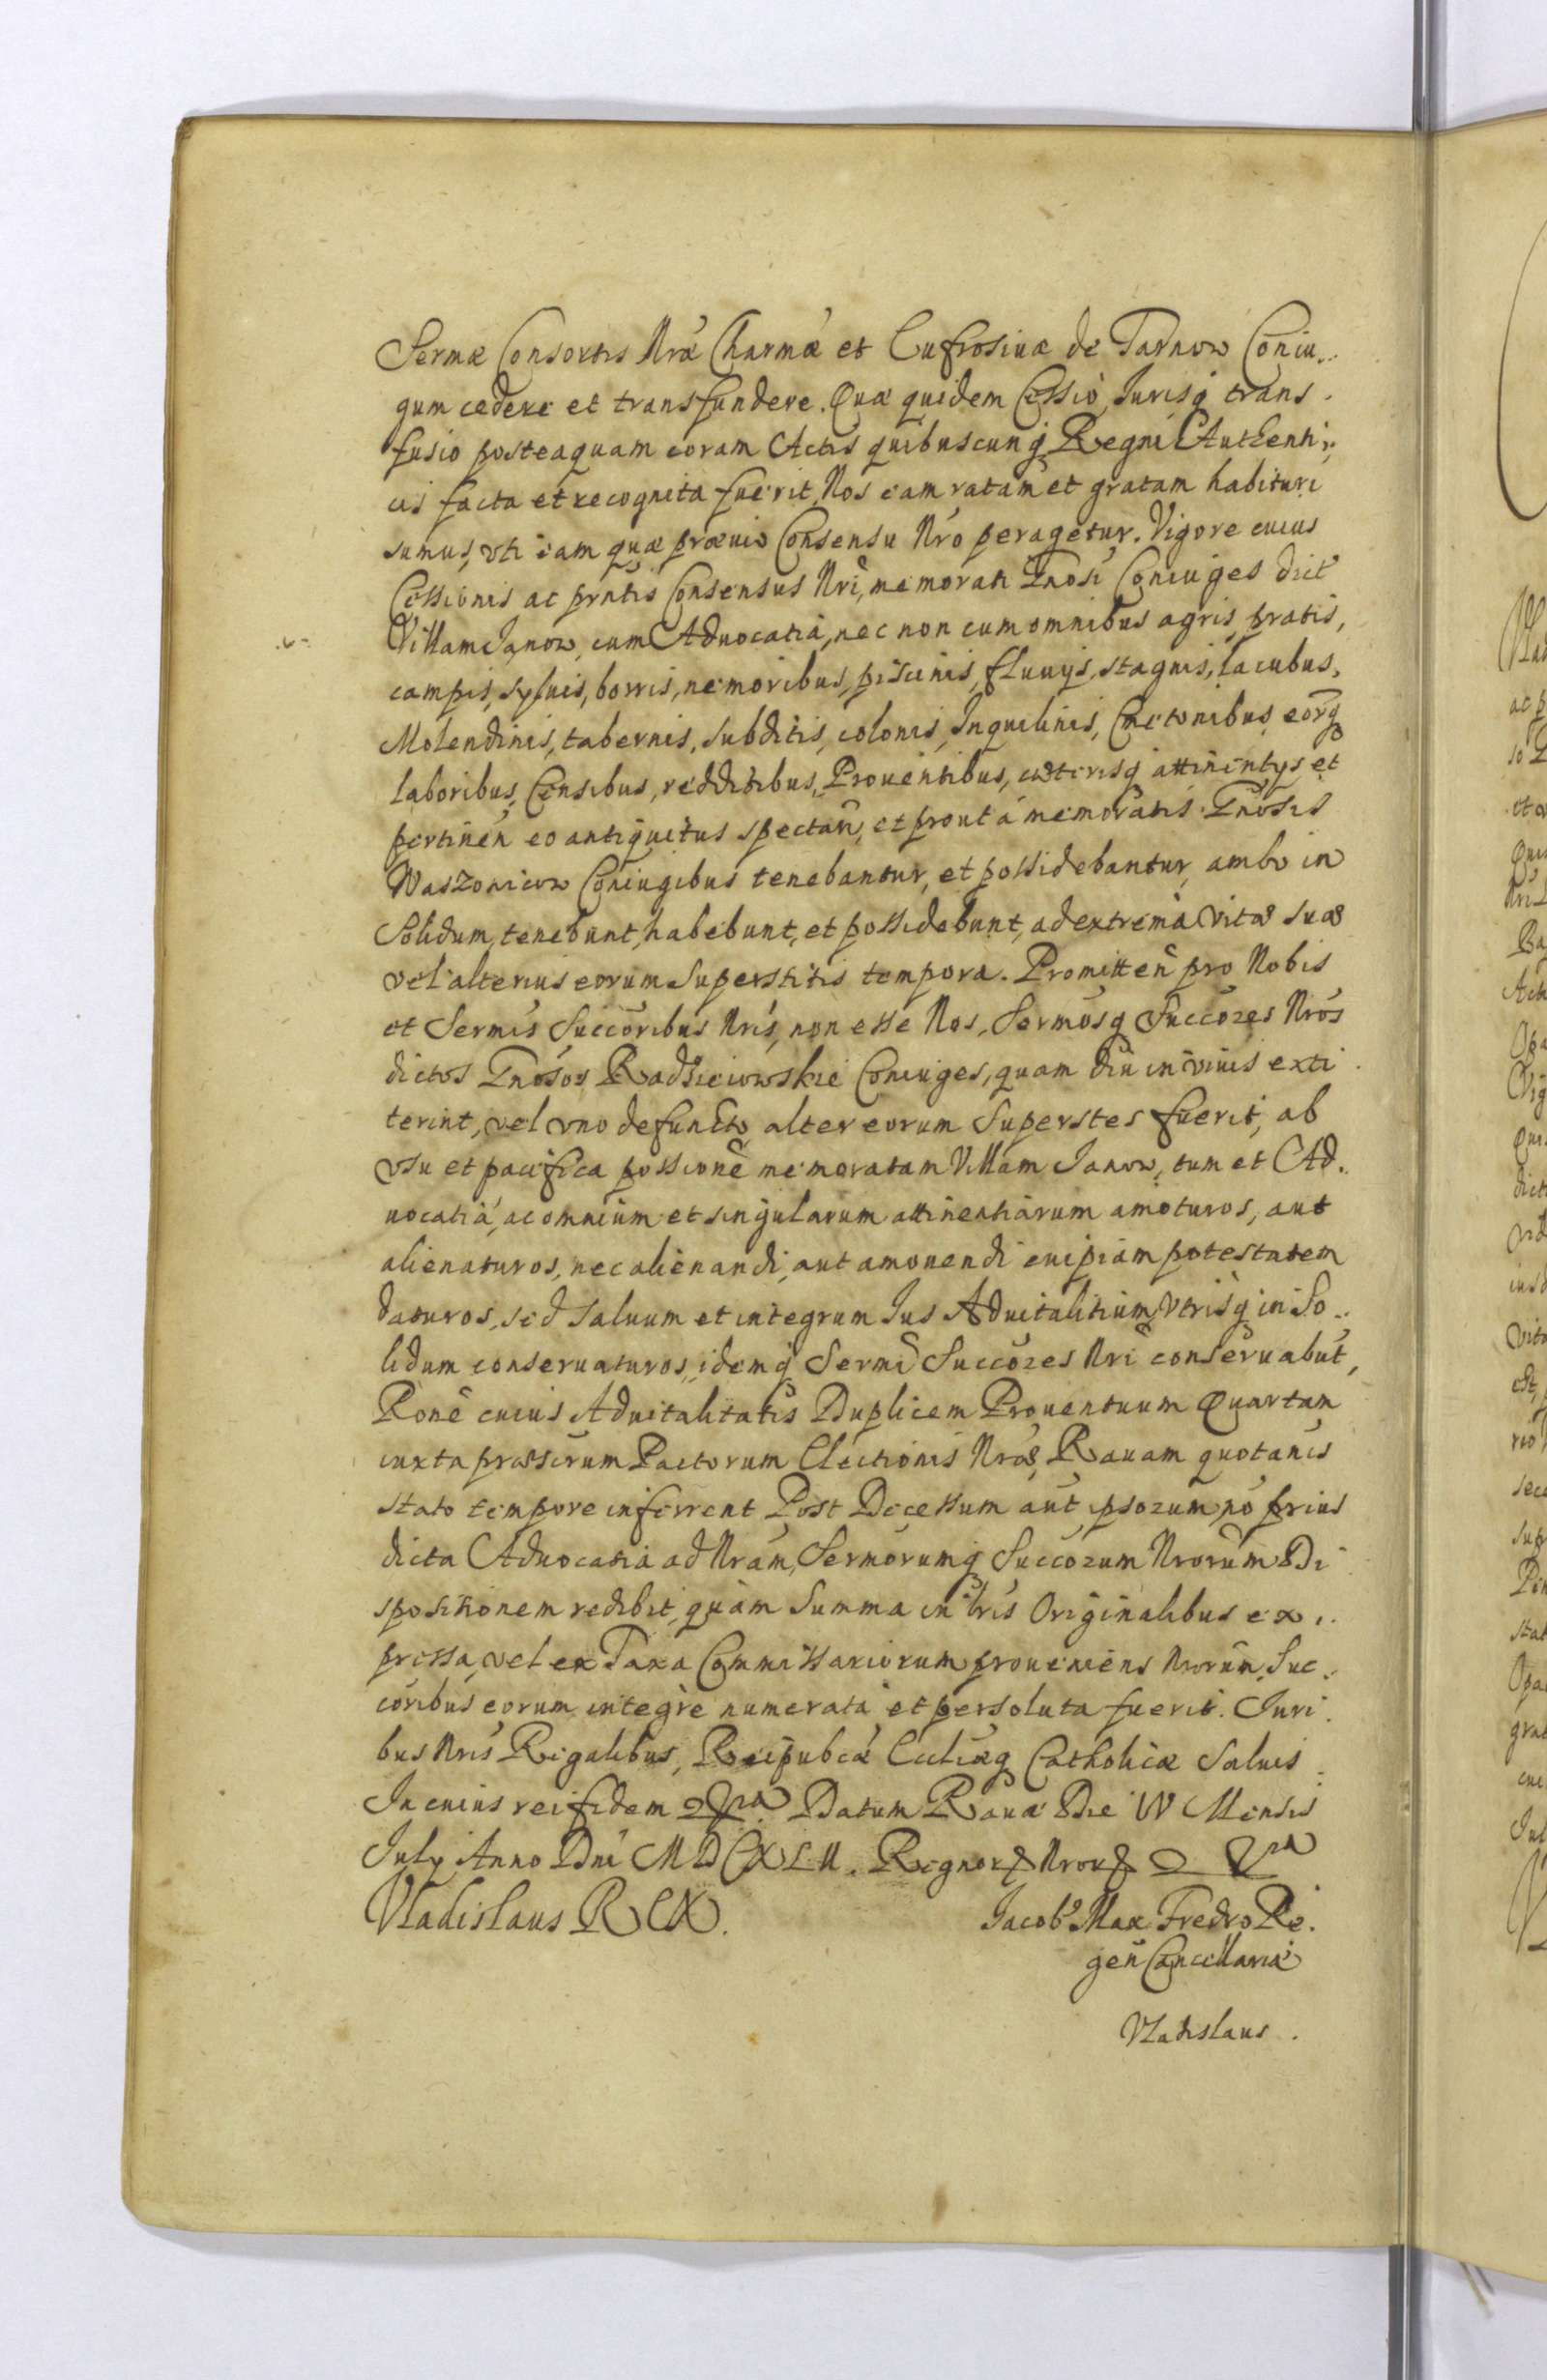 Sermæ Consortis Nræ Charmæ et Eufrosinæ de Tarnow Coniu..
gum cedere et transfundere. Quæ quidem Cessio Jurisq trans.
fusio posteaquam coram Actis quibuscunq Regni Authenti..
cis facta et recognita fuerit, Nos eam ratam et gratam habituri
sumus, vti eam quæ præuio Consensu Nro peragetur. Vigore cuius
Cessionis ac pntis Consensus Nri, memorati Gnosi Coniuges dict
Villam Janow, cum Aduocatia, nec non cum omnibus agris, pratis,
campis, syluis, borris, nemoribus, piscinis, fluuijs, stagnis, lacubus,
Molendinis, tabernis, subditis, colonis, Inquilinis, Cmetonibus, eorq
laboribus, Censibus, redditibus, Prouentibus, cæterisq attinentijs et
pertinen eo antiquitus spectan, et prout a memoratis Gnosis
Waszonicow Coniugibus tenebantur, et possidebantur, ambo in
Solidum, tenebunt, habebunt, et possidebunt, ad extrema vitæ suæ
vel alterius eorum Superstitis tempora. Promitten pro Nobis
et Sermis Succoribus Nris, non esse Nos, Sermosq Succores Nros
dictos Gnosos Radzieiowskie Coniuges, quam diu in viuis exti
terint, vel vno defuncto, alter eorum Superstes fuerit, ab
vsu et pacifica possione memoratam Villam Janow, tum et Ad..
uocatia, ac omnium et singularum attinentiarum amoturos, aut
alienaturos, nec alienandi, aut amouendi cuipiam potestatem
daturos, sed saluum et integrum Jus Aduitalitium, Vtrisq in So..
lidum conseruaturos, idemq Sermi Succores Nri conseruabut,
Rone cuius Aduitalitatis Duplicem Prouentuum Quartam
iuxta præscrum Pactorum Electionis Nræ, Rauam quotanis
stato tempore inferrent Post Decessum aut ipsorum no prius
dicta Aduocatia ad Nram, Sermorumq Succorum Nrorum Di
spositionem redibit, quam Summa in lris Originalibus ex..
pressa, vel ex Taxa Commissariorum proueniens Nrorum, Suc..
coribus eorum integre numerata et persoluta fuerit. Juri.
bus Nris Regalibus, Reipubcæ Eccliæq Catholicæ Saluis
In cuius rei fidem Datum Rauæ Die IV Mensis
July Anno Dni MDCXLII. Regnor Nror
Vladislaus REX. Jacobs Max Fredro Re.
gen Cancellariæ
Vladislaus.